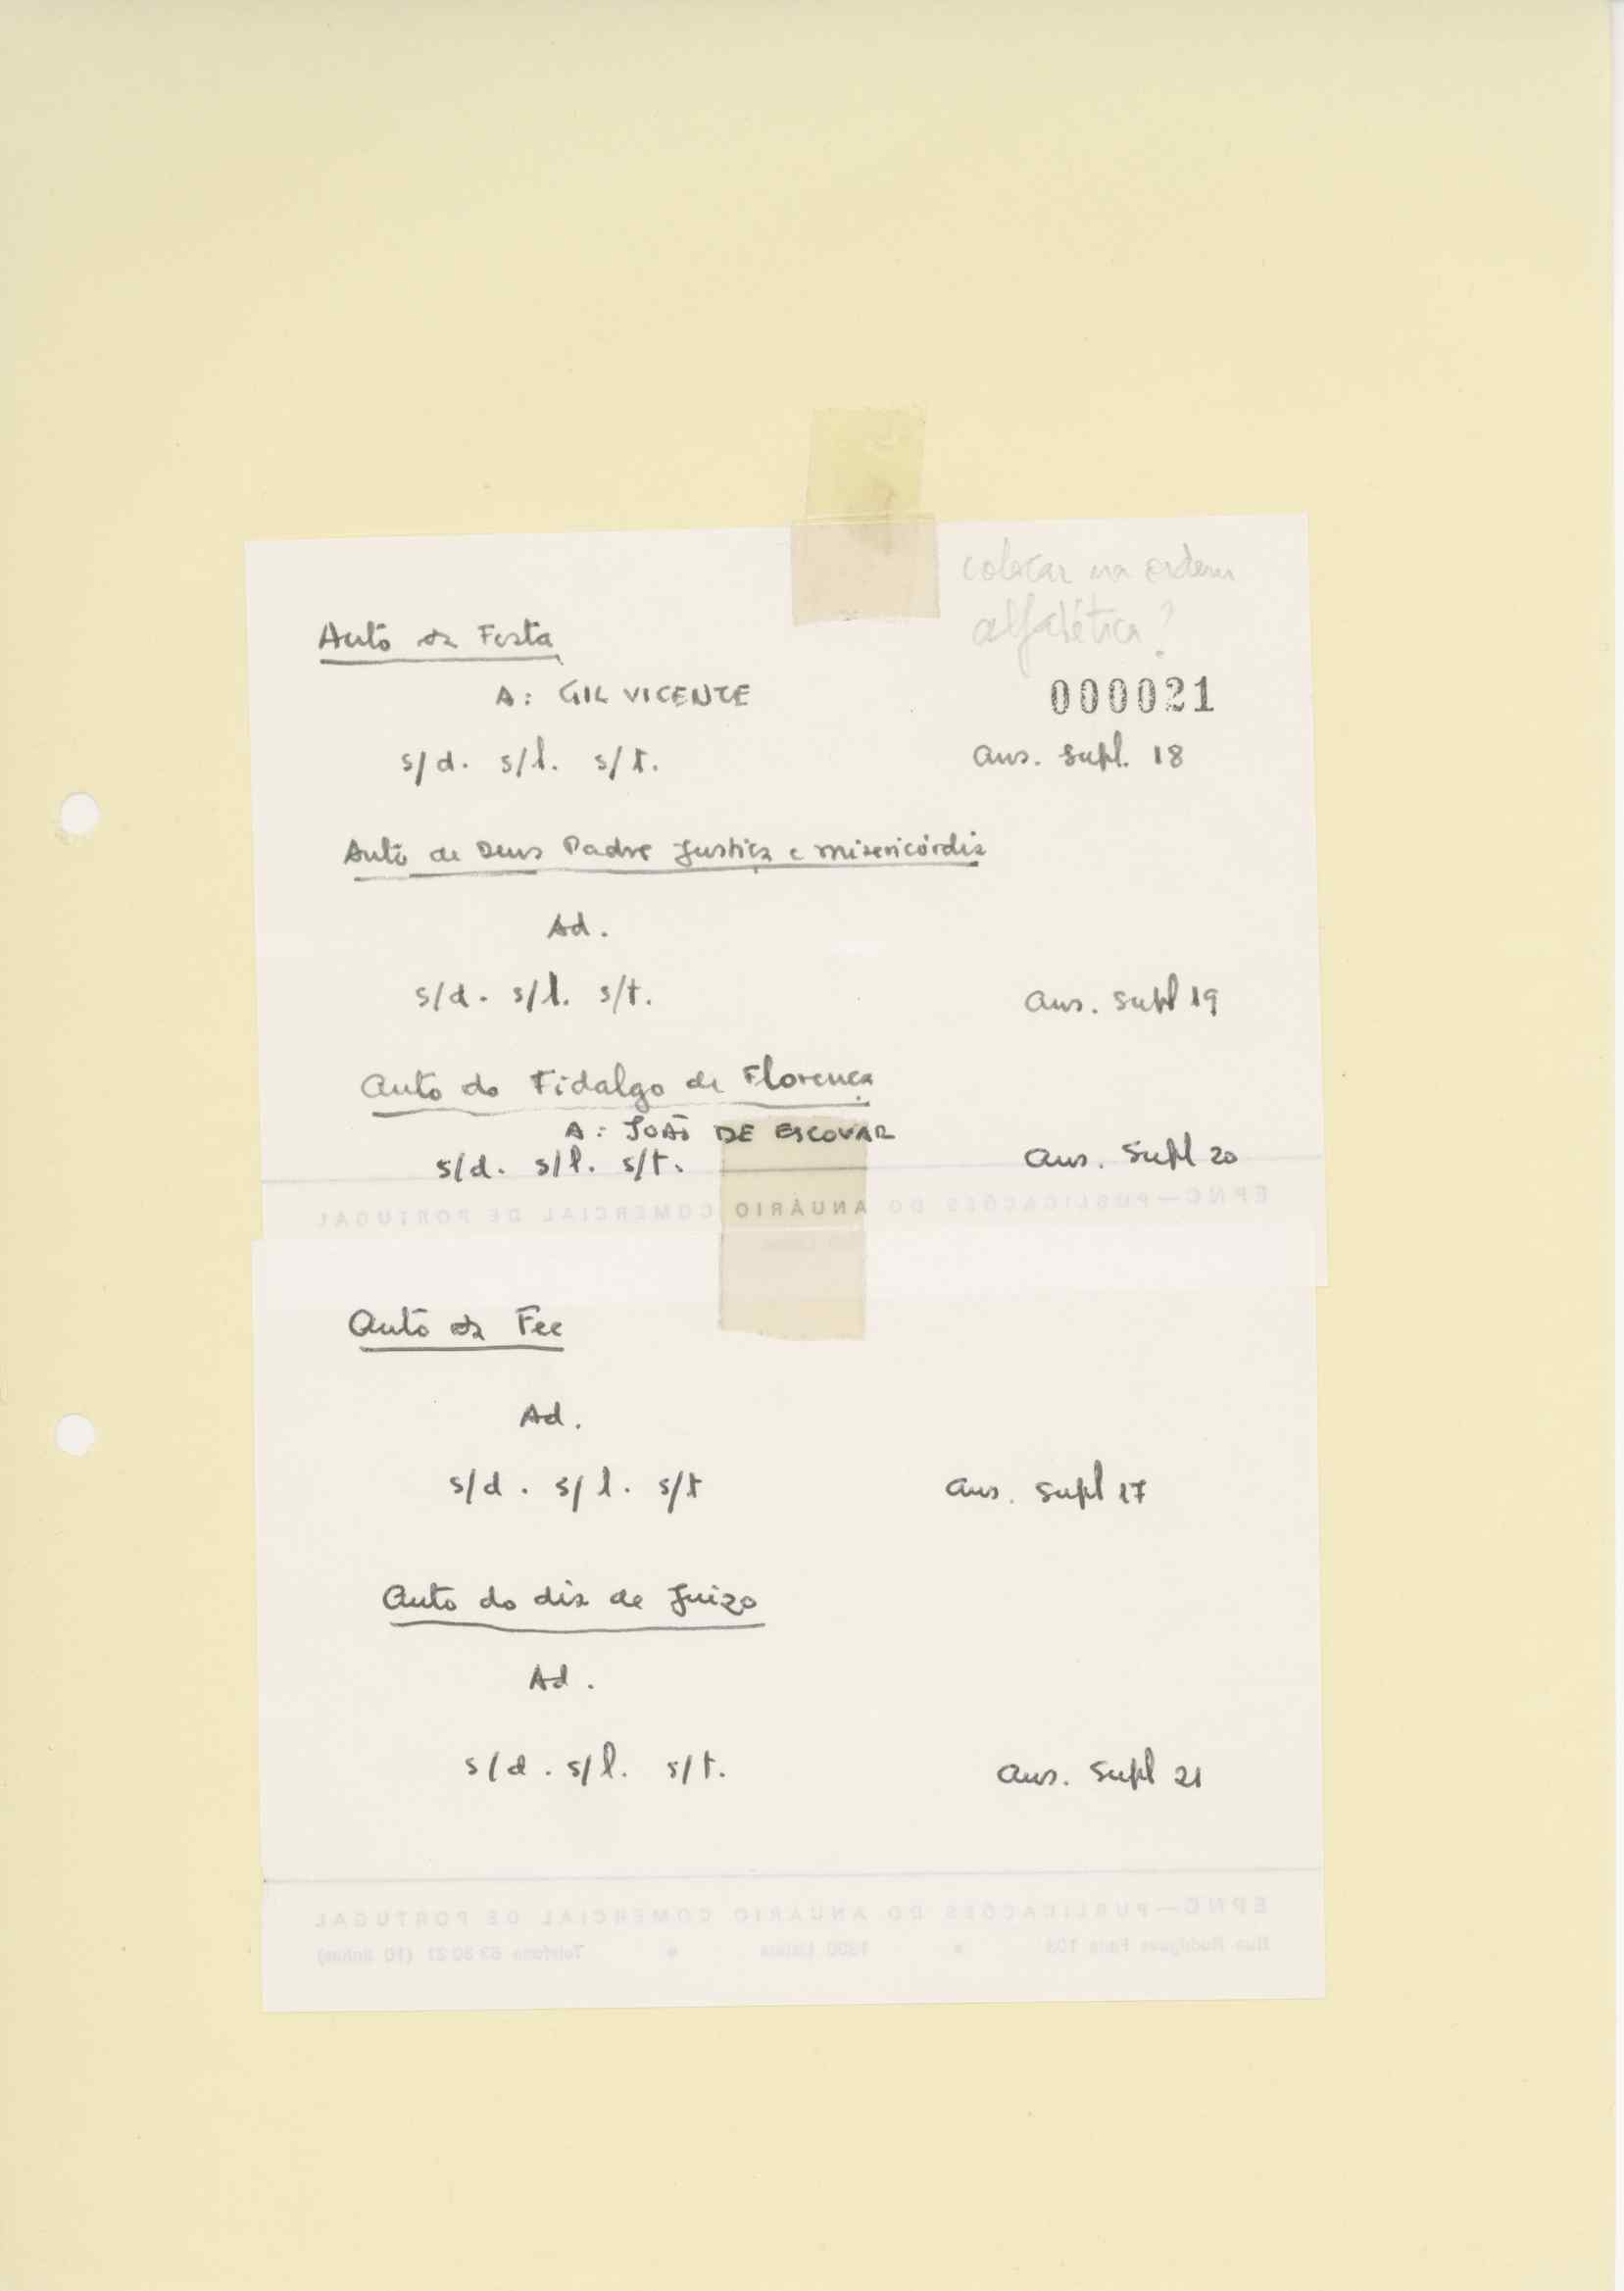 colocar na ordem
alfabética?
Auto da Festa
A: GIL VICENTE
000021
s/d. s/l. s/t.
aus. Supl. 18
Auto de Deus Padre Justiça e misericórdia
Ad.
s/d. s/l. s/t.
aus. Supl 19
Auto do Fidalgo de Florença
A: JOÃO DE ESCOVAR
s/d. s/l. s/t.
aus. Supl 20
EPNC—PUBLICAÇÕES DO ANUÁRIO COMERCIAL DE PORTUGAL
Auto da Fee
Ad.
s/d. s/l. s/t
aus. Supl 17
Auto do dia de Juizo
Ad.
s/d. s/l. s/t.
aus. Supl 21
EPNC—PUBLICAÇÕES DO ANUÁRIO COMERCIAL DE PORTUGAL
Rua Rodrigues Faria 103 * 1300 Lisboa * Telefone (10 linhas)